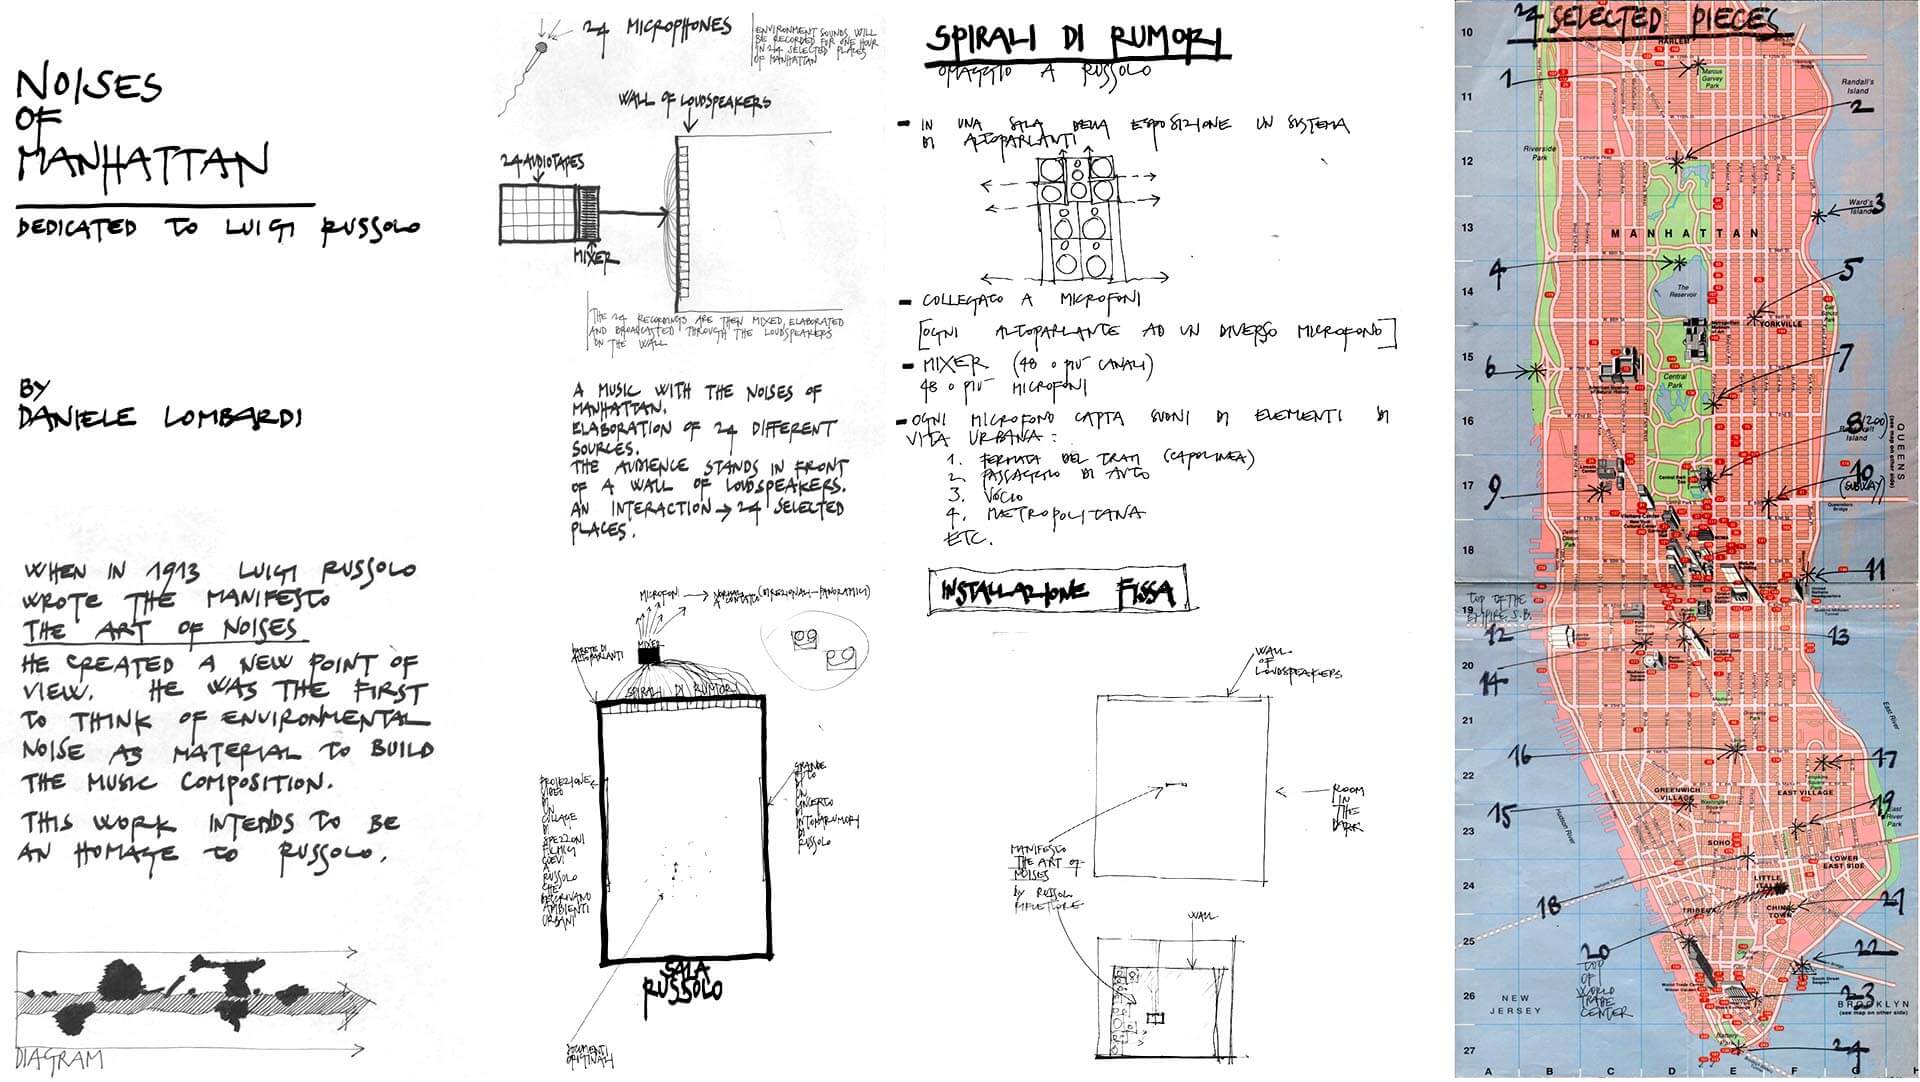 NOISES
OF
MANHATTAN
DEDICATED TO LUIGI RUSSOLO
BY
DANIELE LOMBARDI
WHEN IN 1913 LUIGI RUSSOLO
WROTE THE MANIFESTO
THE ART OF NOISES
HE CREATED A NEW POINT OF
VIEW. HE WAS THE FIRST
TO THINK OF ENVIRONMENTAL
NOISE AS MATERIAL TO BUILD
THE MUSIC COMPOSITION.
THIS WORK INTENDS TO BE
AN HOMAGE TO RUSSOLO.
DIAGRAM
24 MICROPHONES
ENVIRONMENT SOUNDS WILL
BE RECORDED FOR ONE HOUR
IN 24 SELECTED PLACES
OF MANHATTAN
WALL OF LOUDSPEAKERS
24 AUDIOTAPES
MIXER
THE 24 RECORDINGS ARE THEN MIXED, ELABORATED
AND BROADCASTED THROUGH THE LOUDSPEAKERS
ON THE WALL
A MUSIC WITH THE NOISES OF
MANHATTAN.
ELABORATION OF 24 DIFFERENT
SOURCES.
THE AUDIENCE STANDS IN FRONT
OF A WALL OF LOUDSPEAKERS.
AN INTERACTION → 24 SELECTED
PLACES.
MICROFONI → NORMALI (DIREZIONALI - PANORAMICI)
A CONTATTO
MIXER
PARETE DI
ALTOPARLANTI
SPIRALI DI RUMORI
PROIEZIONE
VIDEO
DI
UN
COLLAGE
DI
SPEZZONI
FILMICI
COEVI
A
RUSSOLO
CHE
DESCRIVANO
AMBIENTI
URBANI
GRANDE
FOTO
DI
UN
CONCERTO
DI
INTONARUMORI
DI
RUSSOLO
SALA
RUSSOLO
DOCUMENTI
ORIGINALI
SPIRALI DI RUMORI
OMAGGIO A RUSSOLO
- IN UNA SALA DELLA ESPOSIZIONE UN SISTEMA
DI ALTOPARLANTI
- COLLEGATO A MICROFONI
[OGNI ALTOPARLANTE AD UN DIVERSO MICROFONO]
- MIXER (48 O PIÙ CANALI)
48 O PIÙ MICROFONI
- OGNI MICROFONO CAPTA SUONI DI ELEMENTI DI
VITA URBANA:
1. FERMATA DEL TRAM (CAPOLINEA)
2. PASSAGGIO DI AUTO
3. VOCIO
4. METROPOLITANA
ETC.
INSTALLAZIONE FISSA
WALL
OF
LOUDSPEAKERS
ROOM
IN
THE
DARK
MANIFESTO
THE ART OF
NOISES
BY RUSSOLO
WALL
24 SELECTED PIECES
HARLEM
1
Marcus
Garvey
Park
Randall's
Island
2
Riverside
Park
Ward's
Island
3
MANHATTAN
4
5
The
Reservoir
YORKVILLE
6
7
Central
Park
8 (200)
Island
QUEENS
(see map on other side)
9
10
(SUBWAY)
11
TOP OF THE
EMPIRE S.B.
12
13
14
East River
16
17
GREENWICH
VILLAGE
EAST VILLAGE
15
19
East
River
Park
Hudson River
SOHO
LOWER
EAST SIDE
LITTLE
ITALY
18
TRIBECA
CHINA
TOWN
21
20
TOP
OF
WORLD
TRADE
CENTER
22
23
NEW
JERSEY
BROOKLYN
(see map on other side)
24
10
11
12
13
14
15
16
17
18
19
20
21
22
23
24
25
26
27
A B C D E F G H